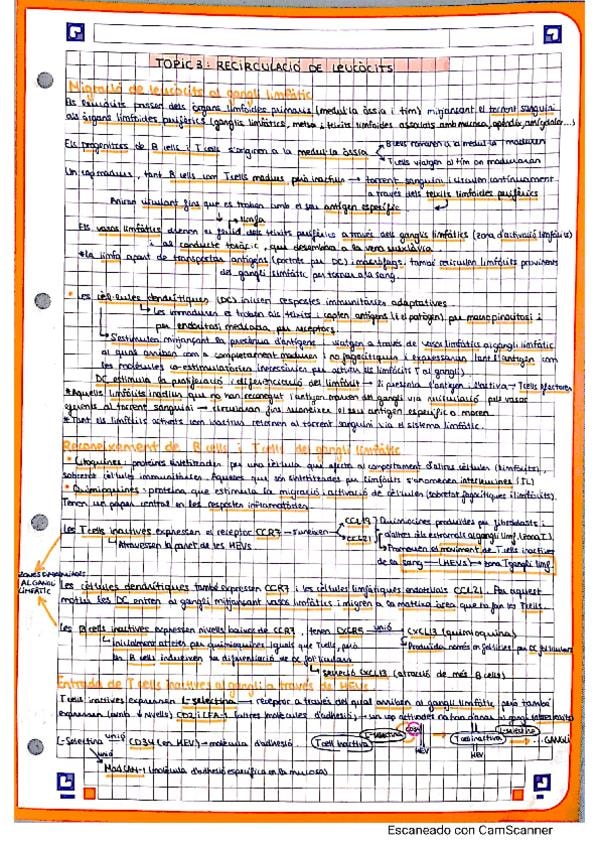 TOPIC 3: RECIRCULACIÓ DE LEUCÒCITS
Migració de leucòcits al gangli limfàtic
Els leucòcits passen dels òrgans limfoides primaris (medul·la òssia i tim) mitjançant el torrent sanguini
als òrgans limfoides perifèrics (ganglis limfàtics, melsa i teixits limfoides associats amb mucosa, apèndix, amígdales...)
Els progenitors de B cells i T cells s'originen a la medul·la òssia
B cells romanen a la medul·la i maduren
T cells viatgen al tim on maduraran
Un cop madurs, tant B cells com T cells madurs però inactius → torrent sanguini i circulen contínuament
a través dels teixits limfoides perifèrics
Aniran circulant fins que es trobin amb el seu antigen específic
→ limfa
Els vasos limfàtics drenen el fluid dels teixits perifèrics a través dels ganglis limfàtics (zona d'activació limfòcits)
i al conducte toràcic, que desemboca a la vena subclàvia
* La limfa apart de transportar antígens (portats per DC) i macròfags, també recirculen limfòcits provinents
del gangli limfàtic per tornar a la sang.
• Les cèl·lules dendrítiques (DC) inicien respostes immunitàries adaptatives
Les immadures es troben als teixits i capten antígens (i el patogen), per macropinocitosi i
per endocitosi mediada per receptors
S'estimulen mitjançant la presència d'antígens viatgen a través de vasos limfàtics al gangli limfàtic
al qual arriben com a completament madures (no fagocítiques) i expressaran tant l'antigen com
les molècules co-estimulatòries (necessàries per activar els limfòcits T al gangli)
DC estimula la proliferació i diferenciació del limfòcit → li presenta l'antigen i l'activa → T cells efectores
* Aquells limfòcits inactius que no han reconegut l'antigen marxen del gangli via
eferents al torrent sanguini → circularan fins conèixer el seu antigen específic o moren.
* Tant els limfòcits activats com inactius retornen al torrent sanguini via el sistema limfàtic.
Reconeixement de B cells i T cells del gangli limfàtic
• Citoquines: proteïnes sintetitzades per una cèl·lula que afecta al comportament d'altres cèl·lules (limfòcits),
sobretot cèl·lules immunitàries. Aquelles que són sintetitzades per limfòcits s'anomenen interleucines (IL)
• Quimioquines: proteïna que estimula la migració i activació de cèl·lules (sobretot fagocítiques i limfòcits).
Tenen un paper central en les respostes inflamatòries.
Les T cells inactives expressen el receptor CCR7 → s'uneixen
CCL19
CCL21
Quimiocines produïdes per fibroblasts i
d'altres cèls estromals al gangli limf. (zona T).
Travessen la paret de les HEVs
→ Promouen el moviment de T cells inactives
de sang → (HEVs) → zona T gangli limf.
AL GANGLI
LIMFÀTIC
Les cèl·lules dendrítiques també expressen CCR7 i les cèl·lules limfàtiques endotelials CCL21. Per aquest
motiu les DC entren al gangli mitjançant vasos limfàtics i migren a la mateixa àrea que ho fan les T cells.
Les B cells inactives expressen nivells baixos de CCR7, tenen CXCR5 unió → CXCL13 (quimioquina)
Inicialment atretes per quimioquines iguals que T cells, però
Produïda només en fol·licles per DC fol·liculars
Un B cells indueixen la diferenciació de DC fol·liculars
secreció CXCL13 (atracció de més B cells)
Entrada de T cells inactives al gangli a través de HEVs
T cells inactives expressen L-selectina → receptor a través del qual arriben al gangli limfàtic però també
expressen (amb ↓ nivells) CD2 i LFA-1 (altres molècules d'adhesió) → un cop activades
L-Selectina unió → CD34 (en HEV) → molècula d'adhesió
T cell inactiva
L-selectina
CD34
HEV
T cell inactiva
L-selectina
HEV
... GANGLI
unió
MadCAM-1 (molècula d'adhesió específica en la mucosa)
Escaneado con CamScanner